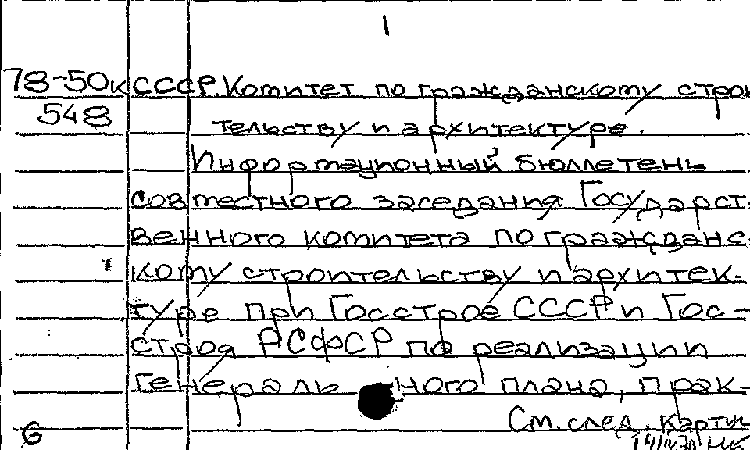 1
78-50к СССР. Комитет по гражданскому строи
548 тельству и архитектуре.
Информационный бюллетень
совместного заседания Государст
венного комитета по гражданс
кому строительству и архитек-
туре при Госстрое СССР и Гос-
строя РСФСР по реализации
генераль ного плана, прак-
См. след. карти
6